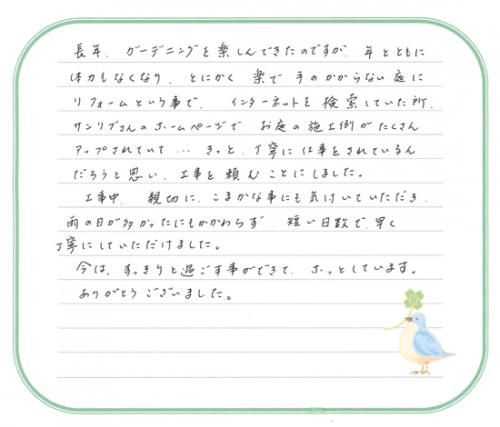 長年、ガーデニングを楽しんできたのですが、年とともに
体力もなくなり、とにかく 楽で 手のかからない庭に
リフォームという事で、インターネットを検索していた所、
サンリブさんのホームページで お庭の施工例がたくさん
アップされていて… きっと、丁寧に仕事をされているん
だろうと思い、工事を頼むことにしました。
工事中、親切に、こまかな事にも気付いていただき、
雨の日が多かったにもかかわらず 短い日数で、早く
丁寧にしていただけました。
今は、すっきりと過ごす事ができて、ホッとしています。
ありがとうございました。